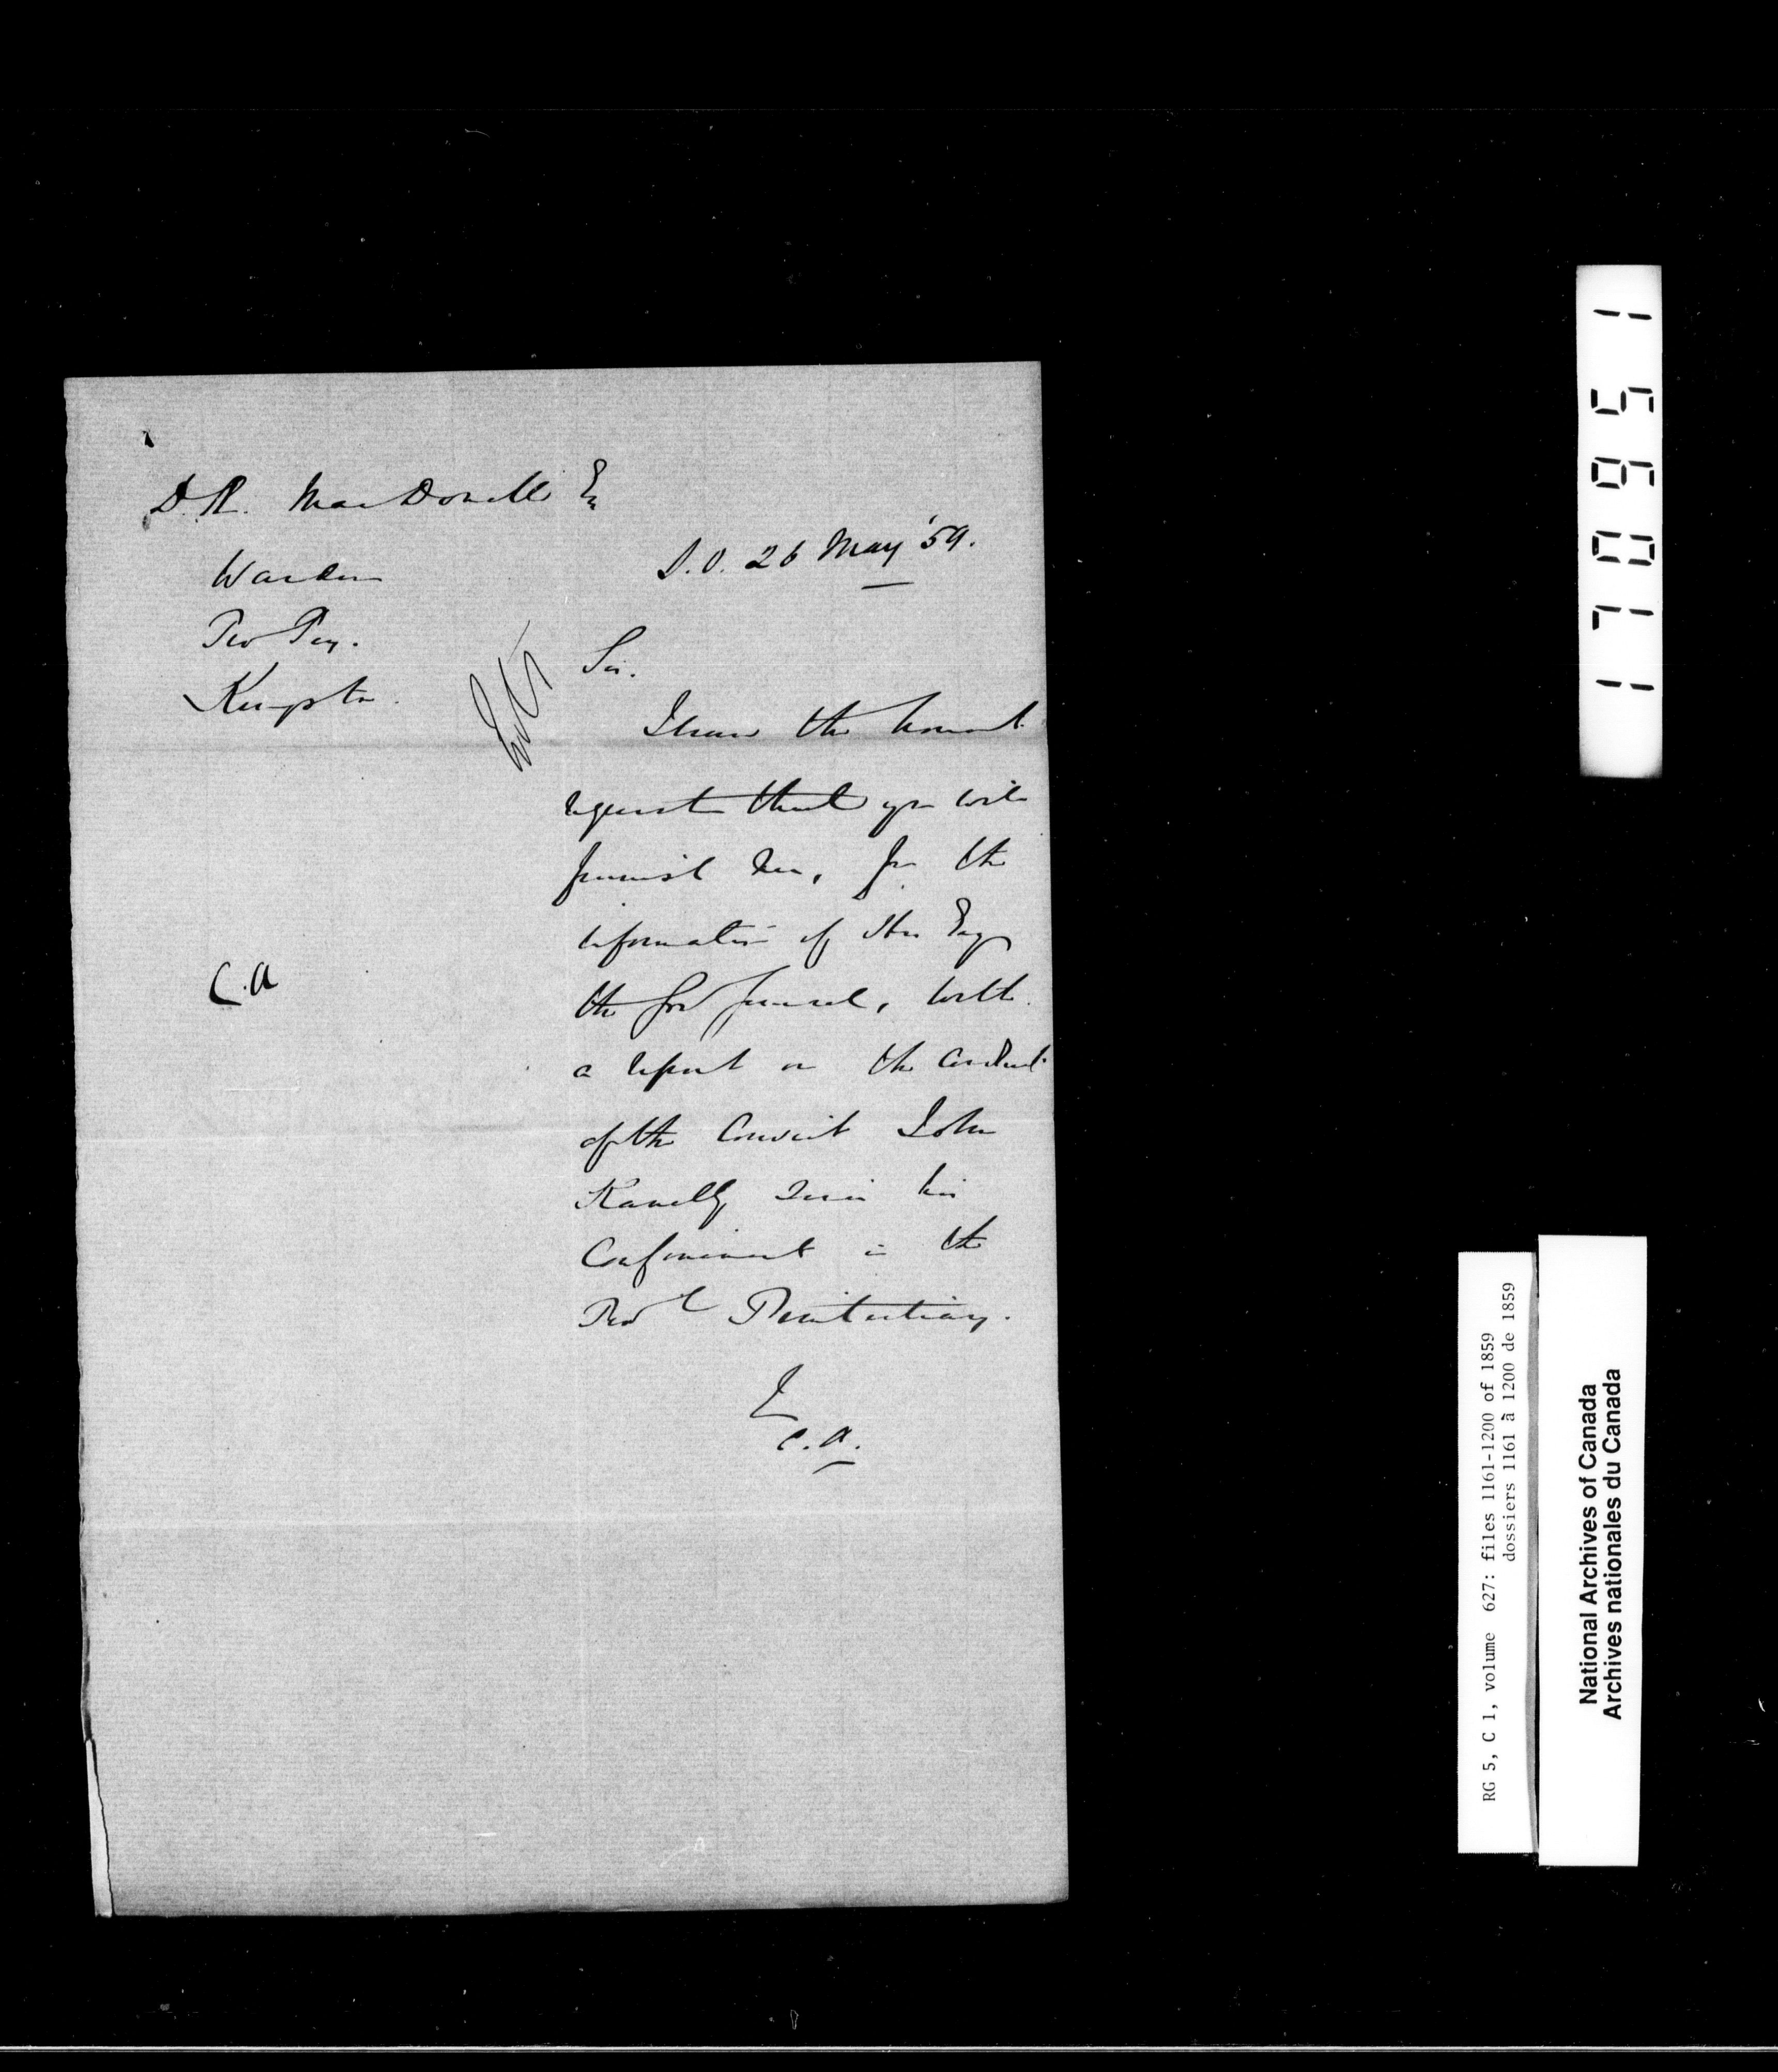 D. R. MacDonell Esq
S.O. 26 May '59.
Warden
Pro Peny.
Kingston
Entd
Sir.
I have the honor to
request that you will
furnish me, for the
information of His Excy
the Gov General, with
a report on the conduct
of the Convict John
Kanelly during his
Confinement in the
Provl Penitentiary.
C.A
&
E.A.
170951
RG 5, C 1, volume 627: files 1161-1200 of 1859
dossiers 1161 à 1200 de 1859
National Archives of Canada
Archives nationales du Canada